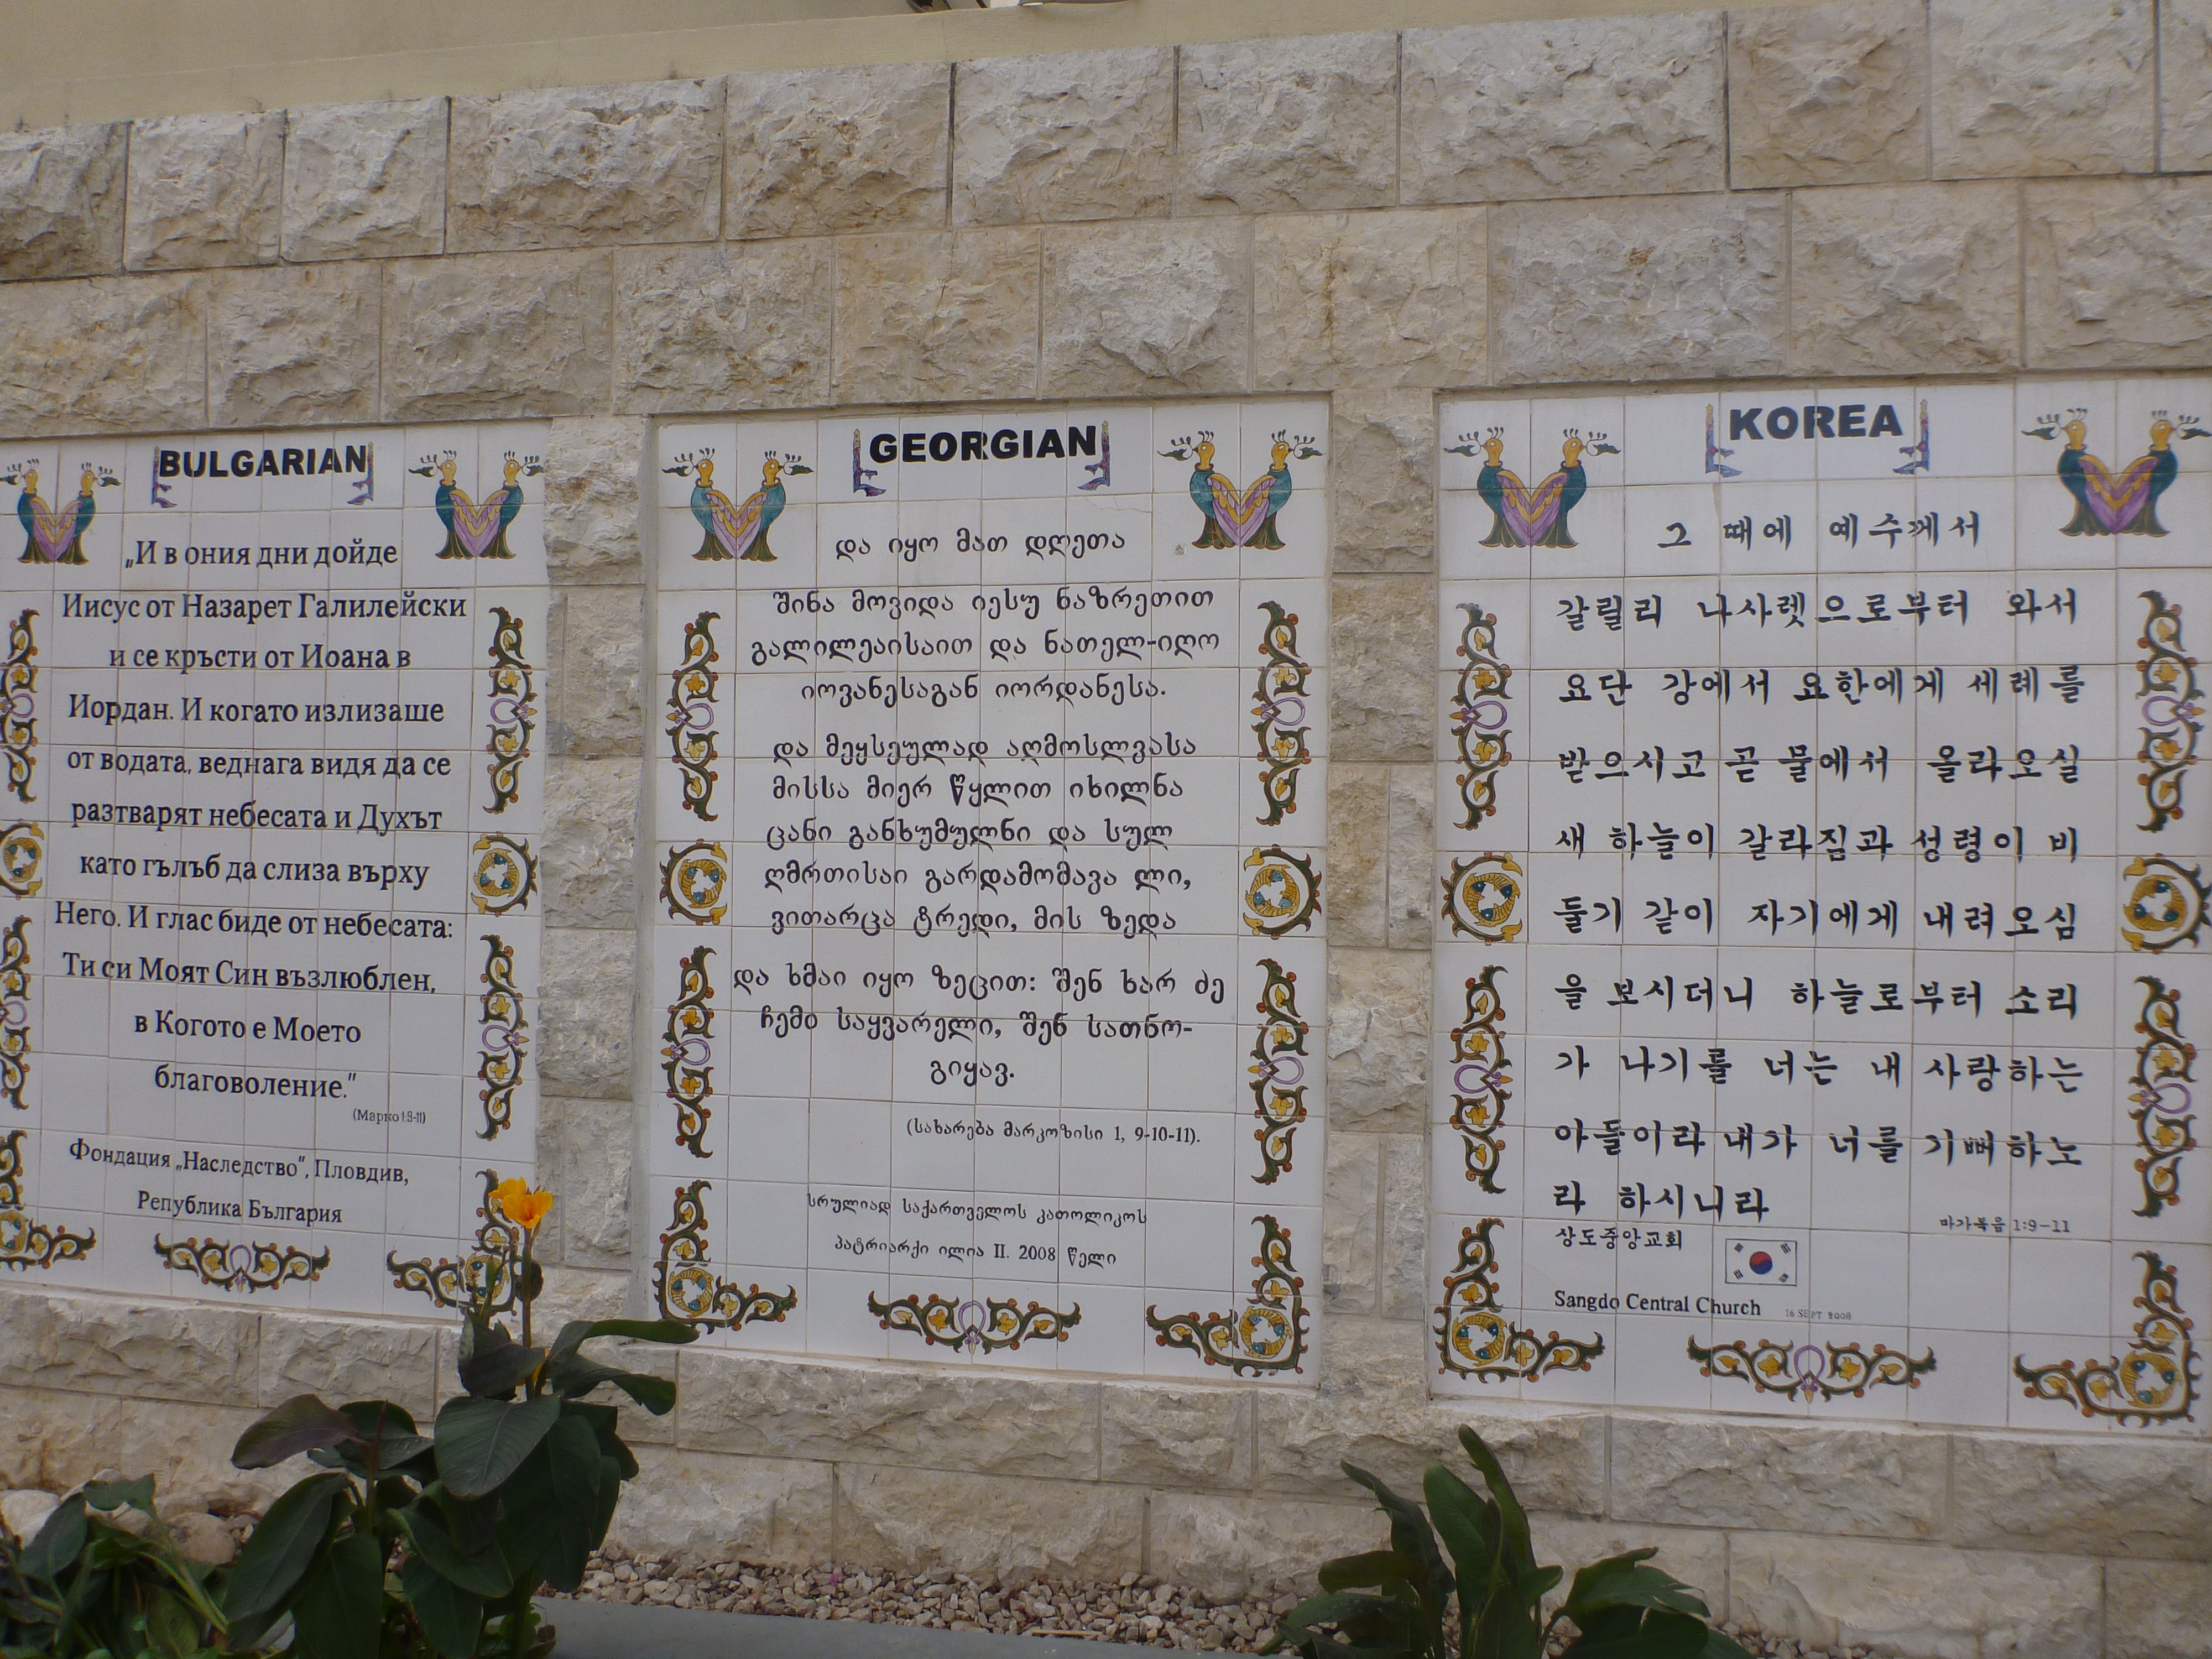 BULGARIAN
„И в ония дни дойде
Иисус от Назарет Галилейски
и се кръсти от Иоана в
Иордан. И когато излизаше
от водата, веднага видя да се
разтварят небесата и Духът
като гълъб да слиза върху
Него. И глас биде от небесата:
Ти си Моят Син възлюблен,
в Когото е Моето
благоволение."
(Марко 1:9-11)
Фондация „Наследство", Пловдив,
Република България
GEORGIAN
და იყო მათ დღეთა
შინა მოვიდა იესუ ნაზრეთით
გალილეაისაით და ნათელ-იღო
იოვანესაგან იორდანესა.
და მეყსეულად აღმოსლვასა
მისსა მიერ წყლით იხილნა
ცანი განხუმულნი და სულ
ღმრთისაი გარდამომავა ლი,
ვითარცა ტრედი, მის ზედა
და ხმაი იყო ზეცით: შენ ხარ ძე
ჩემი საყვარელი, შენ სათნო-
გიყავ.
(სახარება მარკოზისი 1, 9-10-11).
სრულიად საქართველოს კათოლიკოს
პატრიარქი ილია II. 2008 წელი
KOREA
그 때에 예수께서
갈릴리 나사렛으로부터 와서
요단 강에서 요한에게 세례를
받으시고 곧 물에서 올라오실
새 하늘이 갈라짐과 성령이 비
둘기 같이 자기에게 내려오심
을 보시더니 하늘로부터 소리
가 나기를 너는 내 사랑하는
아들이라 내가 너를 기뻐하노
라 하시니라
마가복음 1:9-11
상도중앙교회
Sangdo Central Church 16 SEPT 2008